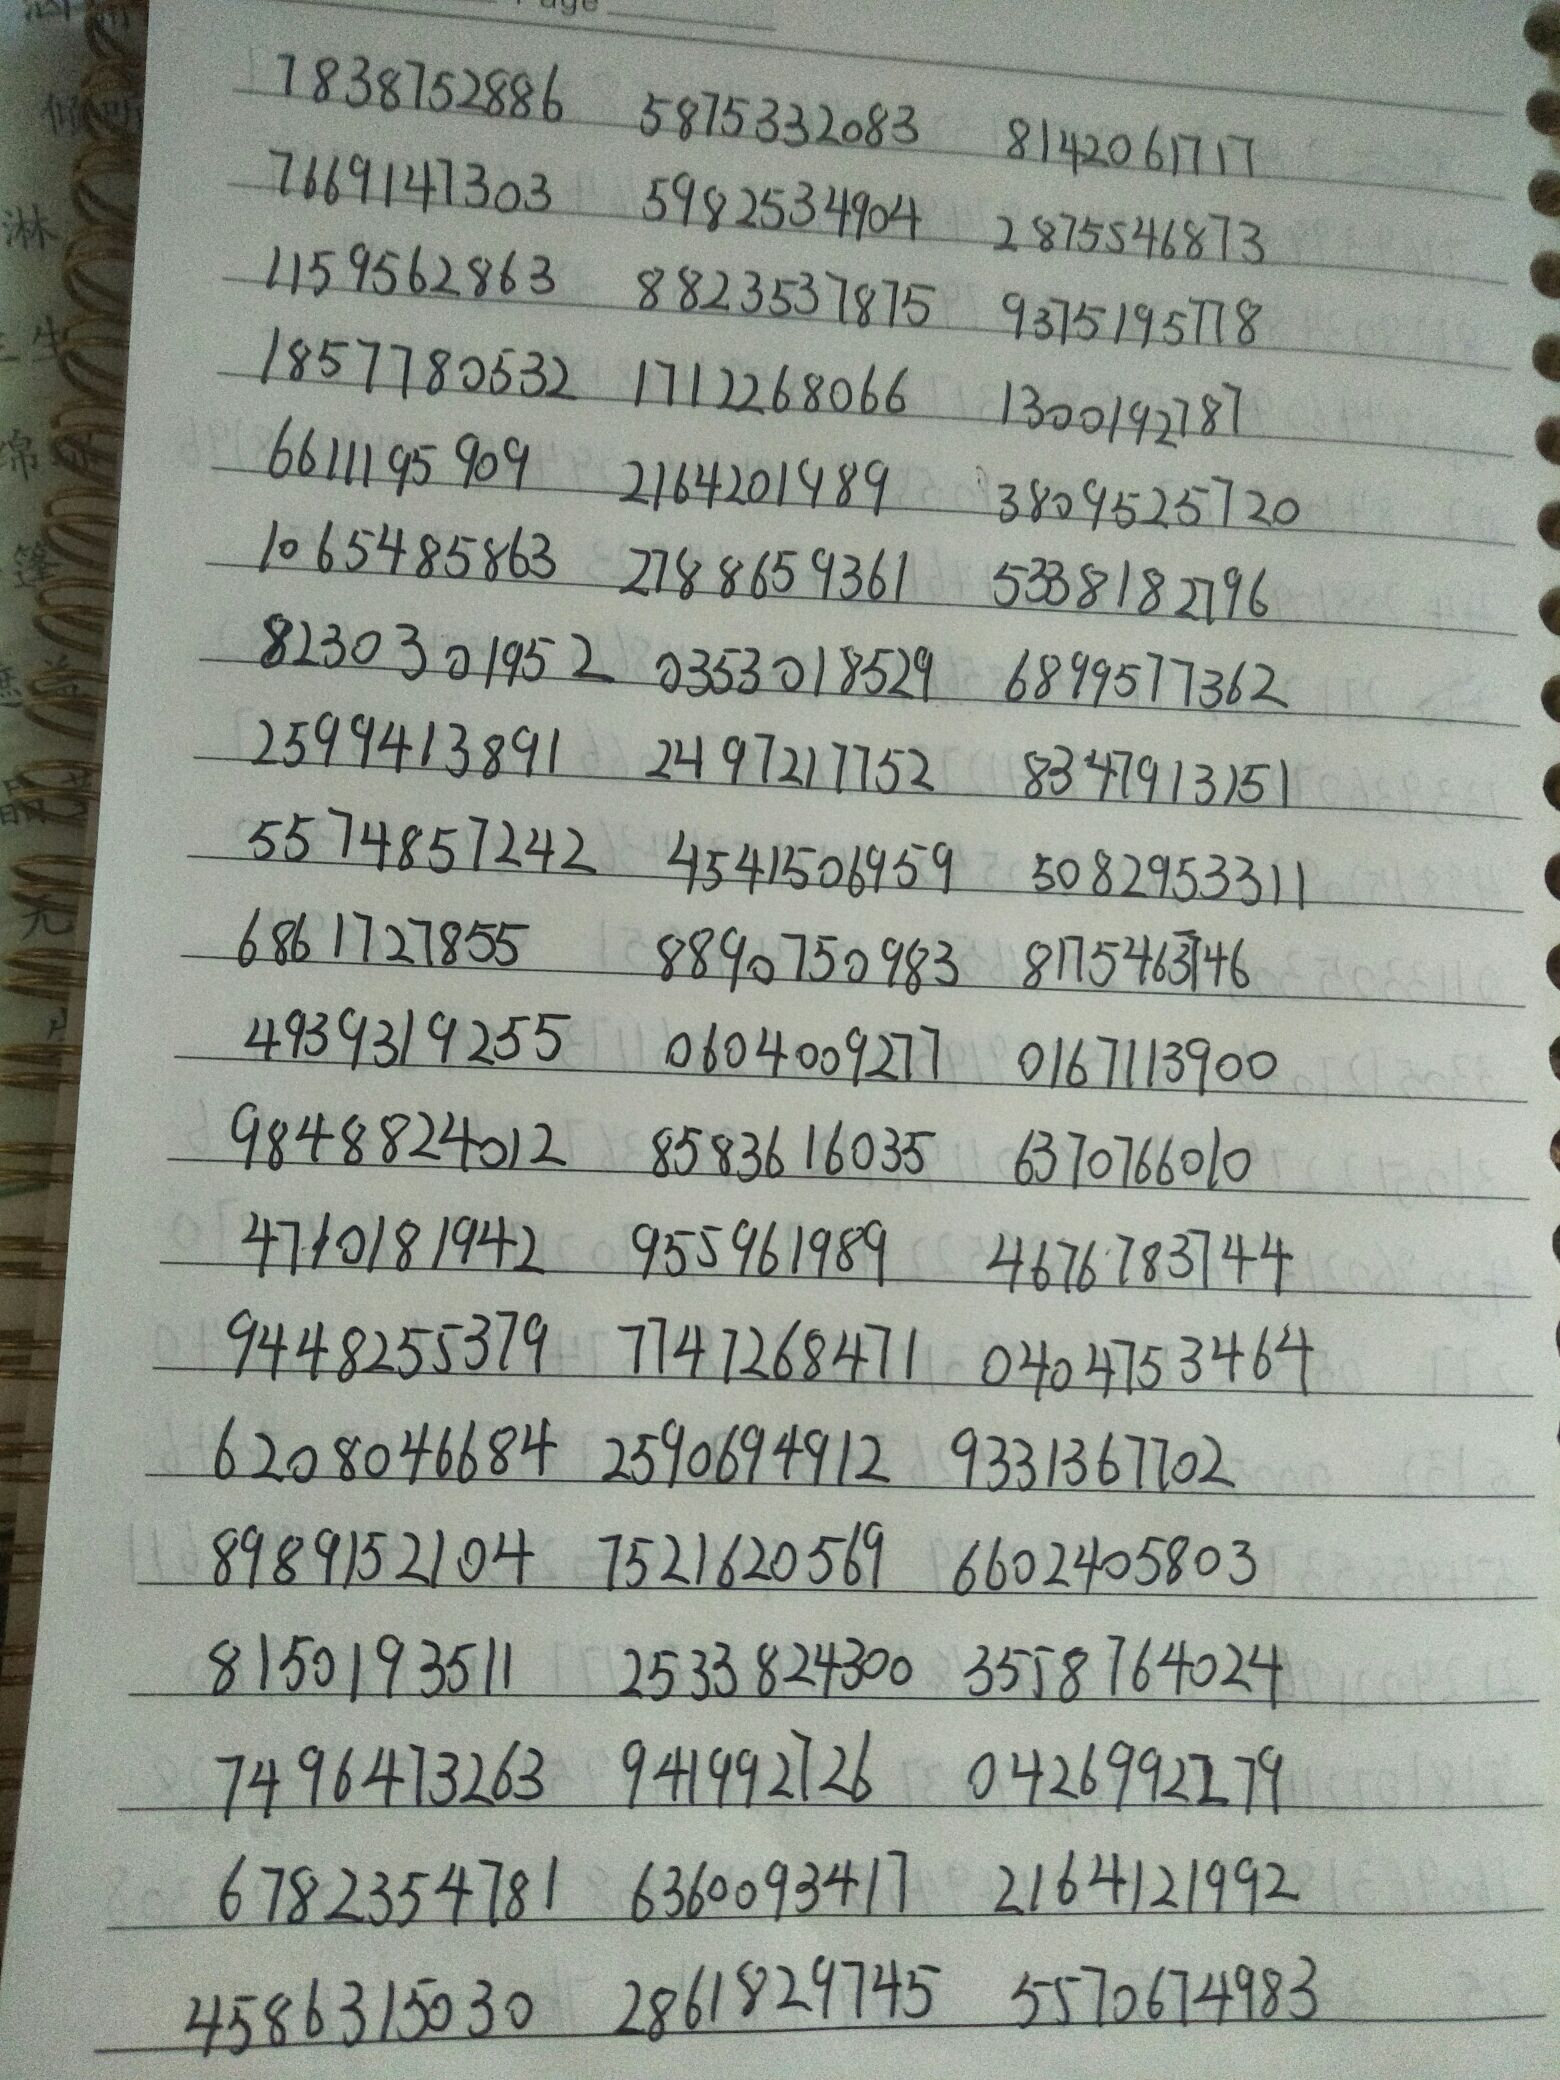 Page
7838752886 5875332083 8142061717
7669147303 5982534904 2875546873
1159562863 8823537875 9375195778
1857780532 1712268066 1300192787
6611195909 2164201989 3809525720
1065485863 2788659361 5338182796
8230301952 0353018529 6899577362
2599413891 2497217752 8347913151
5574857242 4541506959 5082953311
6861727855 8890750983 8175463746
4939319255 0604009277 0167113900
9848824012 8583616035 6370766010
4710181942 955961989 4676783744
9448255379 7747268471 0404753464
6208046684 2590694912 9331367702
8989152104 7521620569 6602405803
8150193511 2533824300 3558764024
7496473263 941992726 0426992779
6782354781 6360093417 2164121992
4586315030 2861829745 5570674983
淋
绵
篷
无